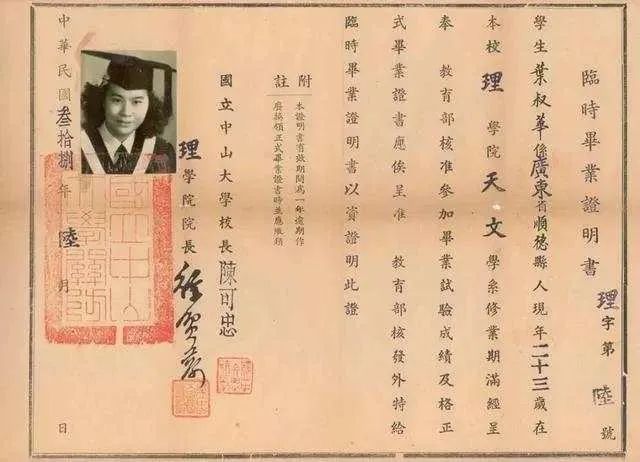 臨時畢業證明書
理字第陸號
學生葉叔華係廣東省順德縣人現年二十三歲在
本校理學院天文學系修業期滿經呈
奉 教育部核准參加畢業試驗成績及格正
式畢業證書應俟呈准 教育部核發外特給
臨時畢業證明書以資證明此證
附註
本證明書有效期間爲一年逾期作
廢換領正式畢業證書時並應繳銷
國立中山大學校長陳可忠
理學院院長
中華民國叁拾捌年陸月 日